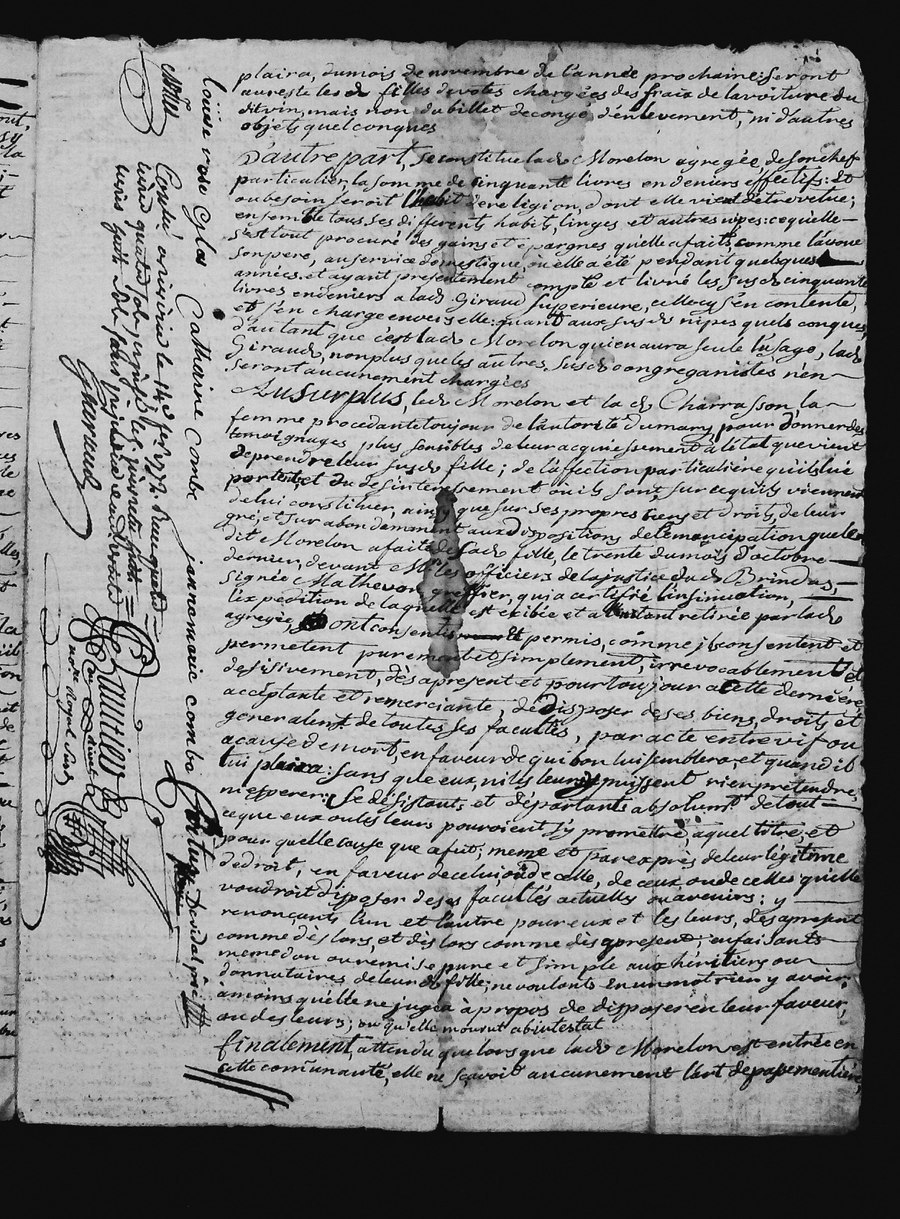 plaira, du mois de novembre de l'année prochaine: seront
au reste les ds filles devotes chargées des fraix de la voiture du
dit vin, mais non du billet de congé, d'enlevement, ni d'autres
objets quelconques
D'autre part, se constitue lad Morelon agregée, de son chef
particulier, la somme de cinquante livres en deniers effectifs: Et
ou besoin seroit l'habit de religion, dont elle vient d'etre vetue;
ensemble tous ses differents habits, linges et autres nipes: ce qu'elle
s'est tout procuré des gains et épargnes qu'elle a fait, comme l'avoue
son pere, au service domestique, ou elle a été pendant quelques
années. et ayant presentement compté et livré les susds cinquante
livres en deniers a lad Giraud Superieure, celle cy s'en contente,
et s'en charge envers elle: quant aux susds nipes quels conques,
d'autant que c'est lad Morelon qui en aura seule l'usage, lad
Giraud, non plus que les autres, susds congreganistes n'en
seront aucunement chargées
Au surplus, led Morelon et la ds Charrasson, la
femme procedante toujour de l'autorité du mary, pour donner des
temoignages plus sensibles de leur acquiessement à l'état que vient
de prendre leur susds fille; de l'affection particuliére qu'ils lui
portent, et du desinteressement où ils sont sur ce qu'ils viennent
de lui constituer, ainsy que sur ses propres biens et droits, de leur
gré, et surabondemment aux dispositions de l'emancipation que led
dit Morelon a faite de sad fille, le trente du mois d'octobre
dernier, devant Mrs les officiers de la justice dud Brindas,
signée Mathevon greffier, qui a certifié l'insinuation,
l'expédition de laquelle est exibée et a l'instant retirée par lad
agregée, ont consenti Et permis, comme ils consentent et
permetent purement et simplement, irrevocablement et
desisivement, dès apresent et pour toujour a cette derniére
acceptante et remerciante, de disposer de ses biens, droits et
generalemt de toutes ses facultés, par acte entre vif ou
a cause de mort, en faveur de qui bon lui semblera et quand il
lui plaira: sans que eux, ni les leurs y puissent rien pretendre,
ni esperer: Se desistants et départants absolumt de tout
ce que eux ou les leurs pouroient s'y promettre, a quel titre, et
pour quelle cause que ce fut; meme et par exprès de leur légitime
de droit, en faveur de celui ou de celle, de ceux, ou de celles qu'elle
voudroit disposer de ses facultés actuelles ou avenirs; y
renonçants l'un et l'autre pour eux et les leurs, dès apresent
comme dès lors, et dès lors comme dès apresent; en faisants
meme don ou remise pure et simple aux héritiers ou
donnataires de leur ds fille; ne voulants en un mot rien y avoir,
à moins qu'elle ne jugea à propos de disposer en leur faveur,
ou des leurs; ou qu'elle mourut abintestat
finalement, attendu que lors que lad Morelon est entrée en
cette communauté, elle ne sçavoit aucunement l'art de passementiére
loüise rose Eyslas Catharine Combe jannemarie combe
Devidal